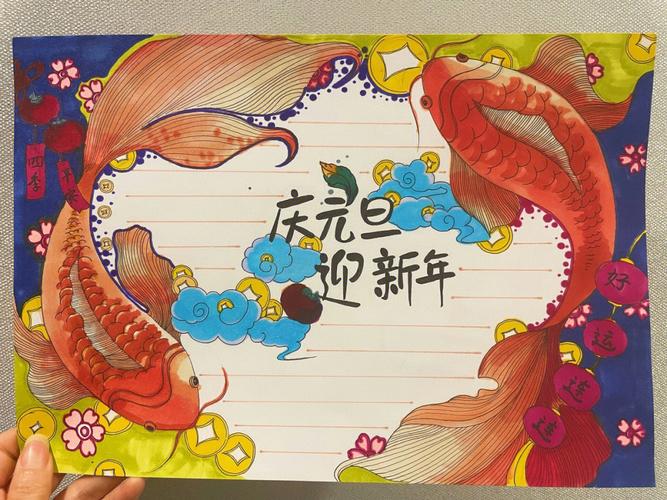 庆元旦
迎新年
四季
平安
好运连连